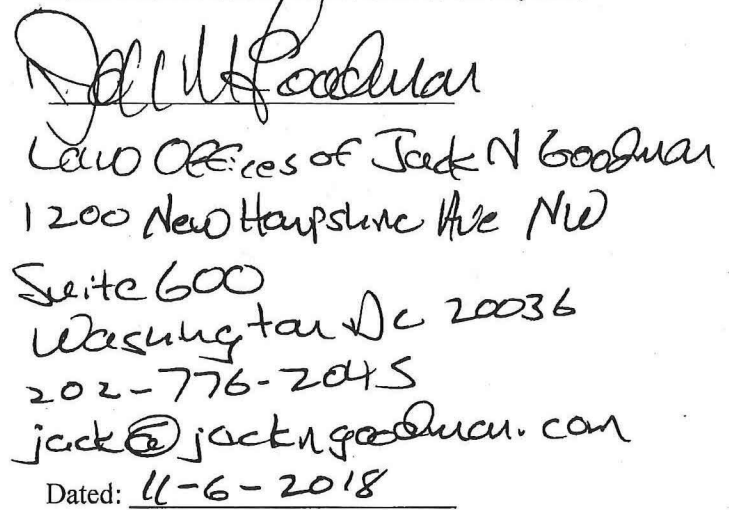 Jack N Goodman
Law Offices of Jack N Goodman
1200 New Hampshire Ave NW
Suite 600
Washington Dc 20036
202-776-2045
jack@jackngoodman.com
Dated: 11-6-2018